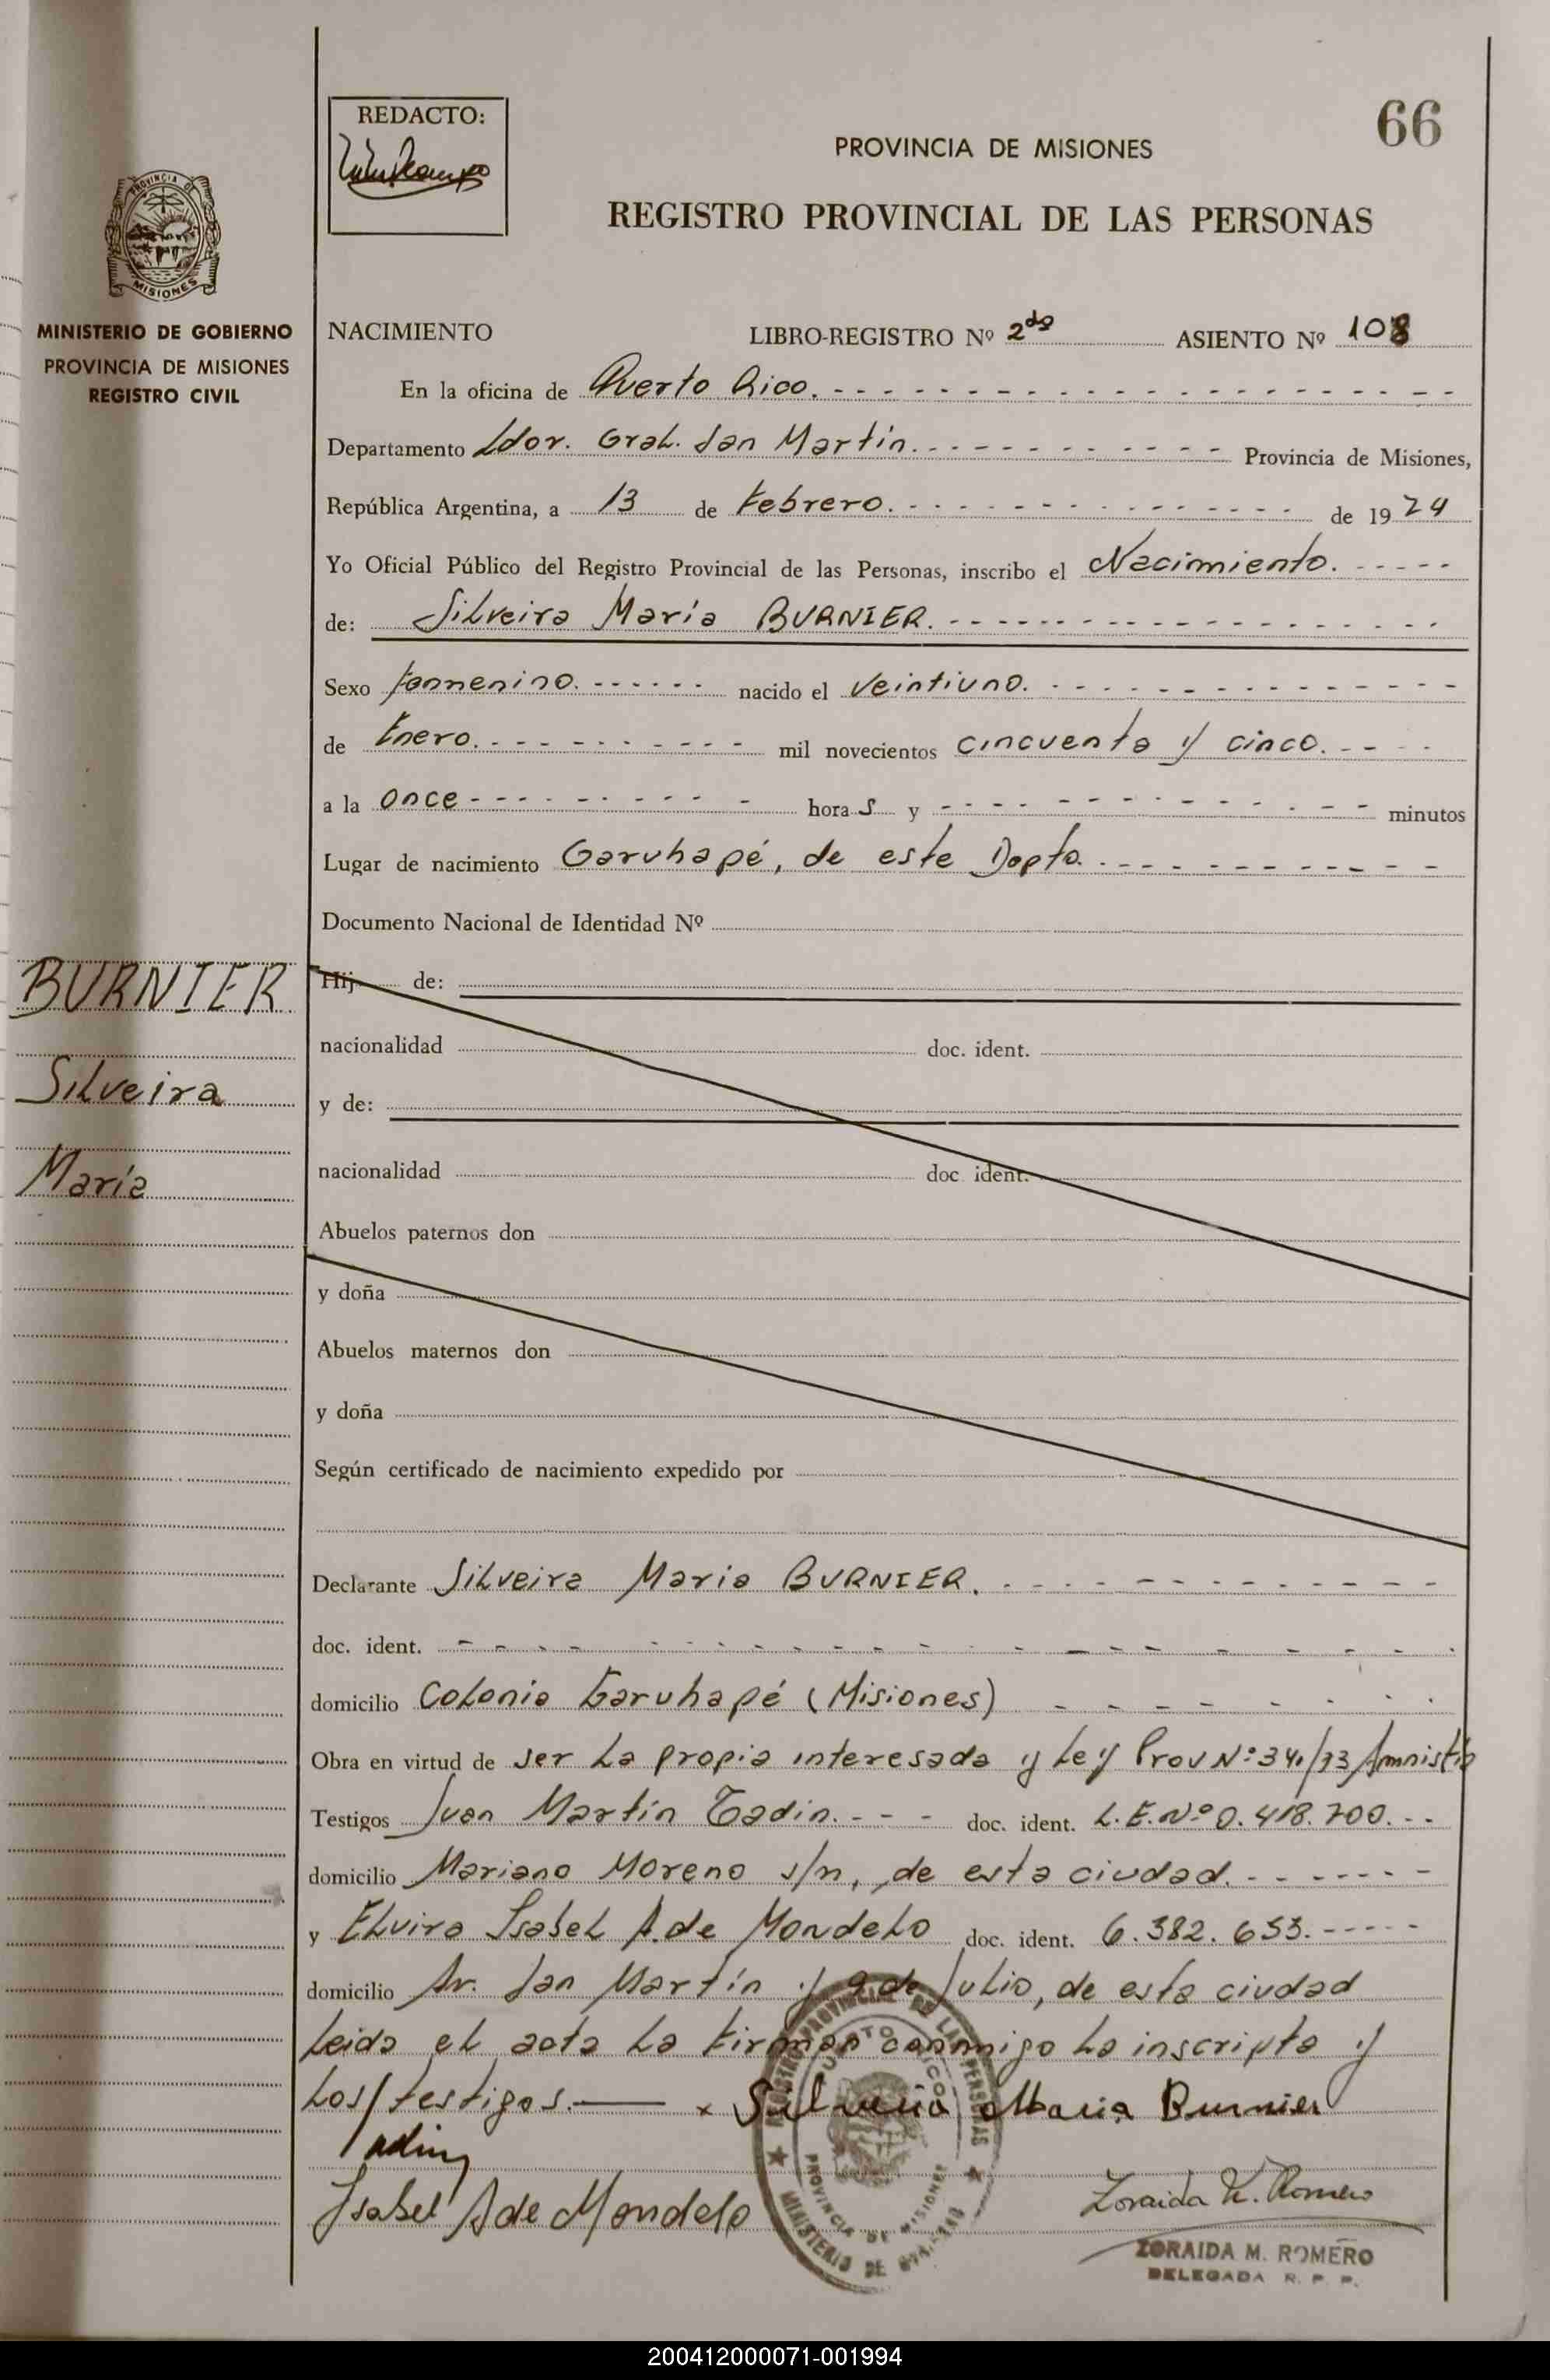 66
REDACTO:
PROVINCIA DE MISIONES
REGISTRO PROVINCIAL DE LAS PERSONAS
PROVINCIA DE
MISIONES
MINISTERIO DE GOBIERNO
PROVINCIA DE MISIONES
REGISTRO CIVIL
NACIMIENTO LIBRO-REGISTRO Nº 2do ASIENTO Nº 108
En la oficina de Puerto Rico.
Departamento Ldor. Gral. San Martín. Provincia de Misiones,
República Argentina, a 13 de Febrero. de 1974
Yo Oficial Público del Registro Provincial de las Personas, inscribo el Nacimiento.
de: Silveira María BURNIER.
Sexo femenino. nacido el Veintiuno.
de Enero. mil novecientos cincuenta y cinco.
a la once hora s y minutos
Lugar de nacimiento Garuhapé, de este Dopto.
Documento Nacional de Identidad Nº
BURNIER
Silveira
María
Hij de:
nacionalidad doc. ident.
y de:
nacionalidad doc. ident.
Abuelos paternos don
y doña
Abuelos maternos don
y doña
Según certificado de nacimiento expedido por
Declarante Silveira Maria BURNIER.
doc. ident.
domicilio Colonia Garuhapé (Misiones)
Obra en virtud de ser la propia interesada y Ley Prov Nº 34/73 Amnistía
Testigos Juan Martín Tadin. doc. ident. L.E.Nº 0.418.700.
domicilio Mariano Moreno s/n, de esta ciudad.
y Elvira Isabel A. de Mondelo doc. ident. 6.382.653.
domicilio Av. San Martín y 9 de Julio, de esta ciudad
Leida el acta la firman conmigo la inscripta y
los testigos. x Silveria Maria Burnier
Tadin
Isabel A de Mondelo
Zoraida M. Romero
ZORAIDA M. ROMERO
DELEGADA R. P. P.
REGISTRO PROVINCIAL DE LAS PERSONAS
PUERTO RICO
PROVINCIA DE MISIONES
MINISTERIO DE GOBIERNO
200412000071-001994